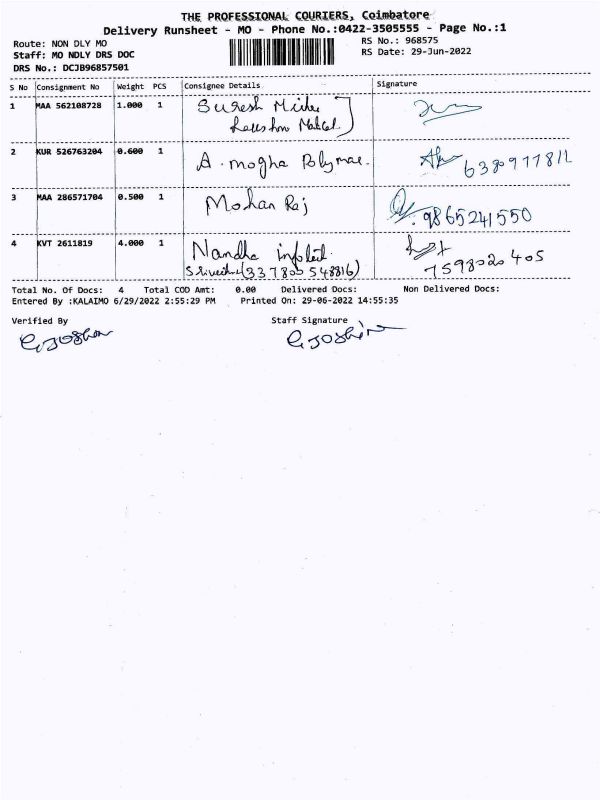 THE PROFESSIONAL COURIERS, Coimbatore
Delivery Runsheet - MO - Phone No.:0422-3505555 - Page No.:1
Route: NON DLY MO RS No.: 968575
Staff: MO NDLY DRS DOC RS Date: 29-Jun-2022
DRS No.: DCJB96857501
S No Consignment No Weight PCS Consignee Details Signature
1 MAA 562108728 1.000 1 Suresh
2 KUR 526763204 0.600 1 A. mogha 6380977811
3 MAA 286571704 0.500 1 Mohan Raj 9865241550
4 KVT 2611819 4.000 1 Nandha
(337800548816) 7598020405
Total No. Of Docs: 4 Total COD Amt: 0.00 Delivered Docs: Non Delivered Docs:
Entered By :KALAIMO 6/29/2022 2:55:29 PM Printed On: 29-06-2022 14:55:35
Verified By Staff Signature